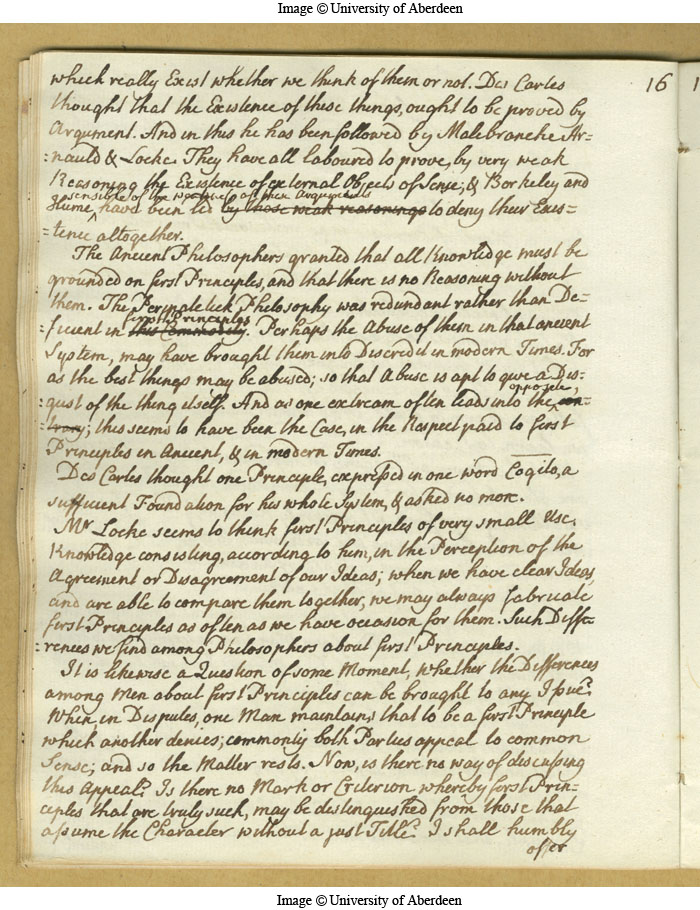 Image © University of Aberdeen
16
which really Exist whether we think of them or not. Des Cartes
thought that the Existence of these things, ought to be proved by
Argument. And in this he has been followed by Malebranche Ar-
-nauld & Locke. They have all laboured to prove, by very weak
Reasoning the Existence of external Objects of Sense; & Berkeley and
sensible of the weakness of their Arguments
Hume, have been led by those weak reasonings to deny their Exis-
-tence altogether.
The Ancient Philosophers granted that all Knowledge must be
grounded on first Principles, and that there is no Reasoning without
them. The Peripatetick Philosophy was redundant rather than De-
first Principles
-ficient in this Commodity. Perhaps the Abuse of them in that ancient
System, may have brought them into Discredit in modern Times. For
as the best things may be abused; so that Abuse is apt to give a Dis-
opposite,
-gust of the thing itself. And as one extream often leads into the con-
-trary; this seems to have been the Case, in the Respect paid to first
Principles in Ancient, & in modern Times.
Des Cartes thought one Principle, expressed in one word Cogito, a
sufficient Foundation for his whole System, & asked no more.
Mr Locke seems to think first Principles of very small Use.
Knowledge consisting, according to him, in the Perception of the
Agreement or Disagreement of our Ideas; when we have clear Ideas,
and are able to compare them together, we may always fabricate
first Principles as often as we have occasion for them. Such Diffe-
-rences we find among Philosophers about first Principles.
It is likewise a Question of some Moment, whether the Differences
among Men about first Principles can be brought to any Issue?
When in Disputes, one Man maintains that to be a first Principle
which another denies; commonly both Parties appeal to common
Sense; and so the Matter rests. Now, is there no way of discussing
this Appeal? Is there no Mark or Criterion whereby first Prin-
-ciples that are truly such, may be distinguished from those that
assume the Character without a just Title? I shall humbly
offer
Image © University of Aberdeen